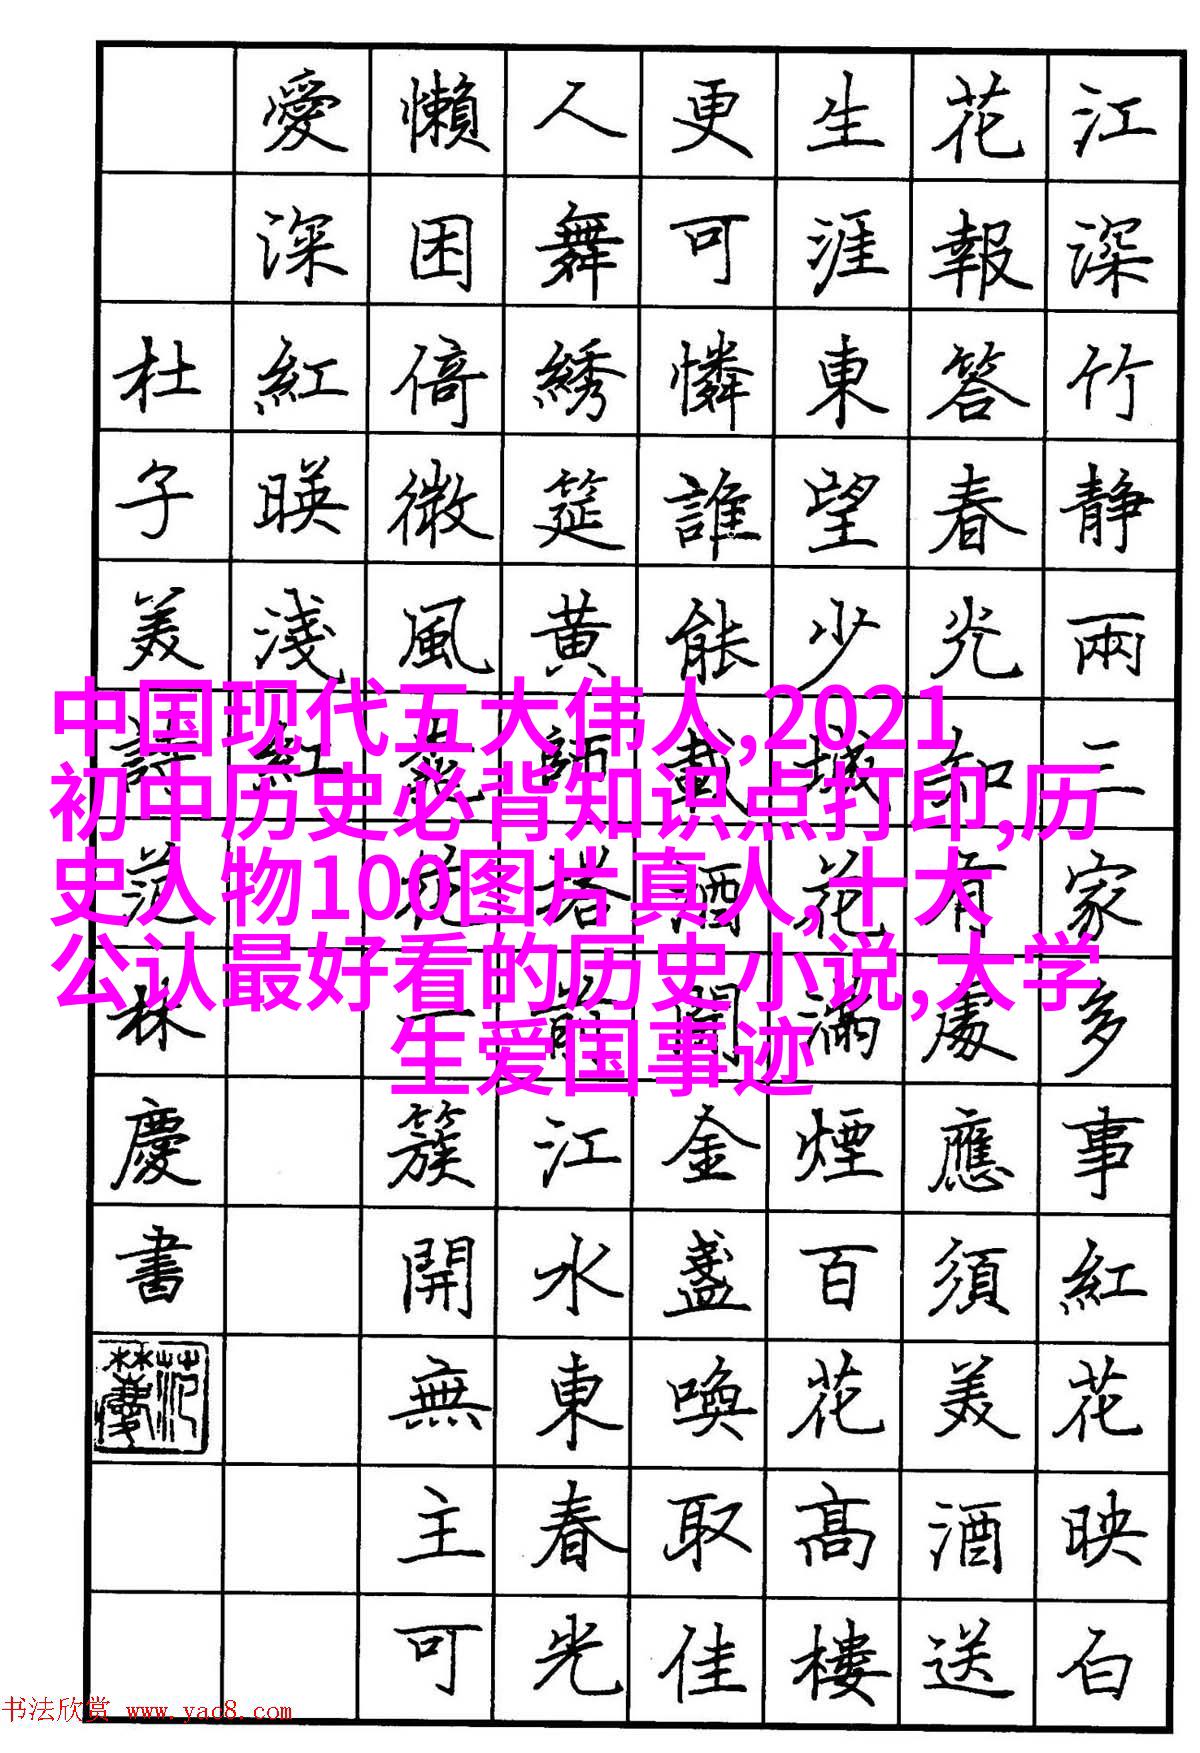 江深竹静兩三家多事紅花映白
花報答春光知有處應須美酒送
生涯東望少城花滿煙百花高樓
更可憐誰能載酒開金盞喚取佳
人舞綉筵黄師塔前江水東春光
懶困倚微風桃花一簇開無主可
愛深紅暎淺紅
杜子美詩范林慶書
中国现代五大伟人,2021
初中历史必背知识点打印,历
史人物100图片真人,十大
公认最好看的历史小说,大学
生爱国事迹
书法欣赏 www.yac8.com